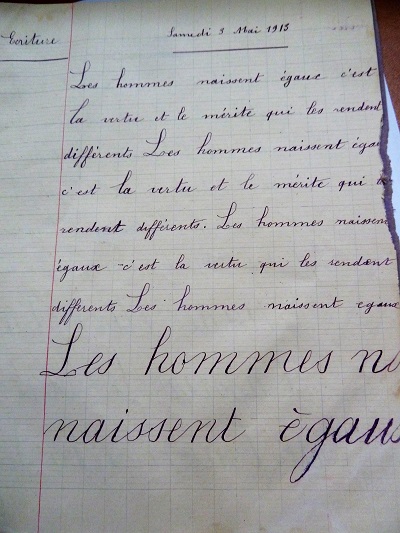 Ecriture
Samedi 3 Mai 1913
Les hommes naissent égaux c'est
la vertu et le mérite qui les rendent
différents Les hommes naissent égau
c'est la vertu et le mérite qui
rendent différents. Les hommes naissent
égaux - c'est la vertu qui les rendent
différents Les hommes naissent egaux
Les hommes n
naissent ègaux